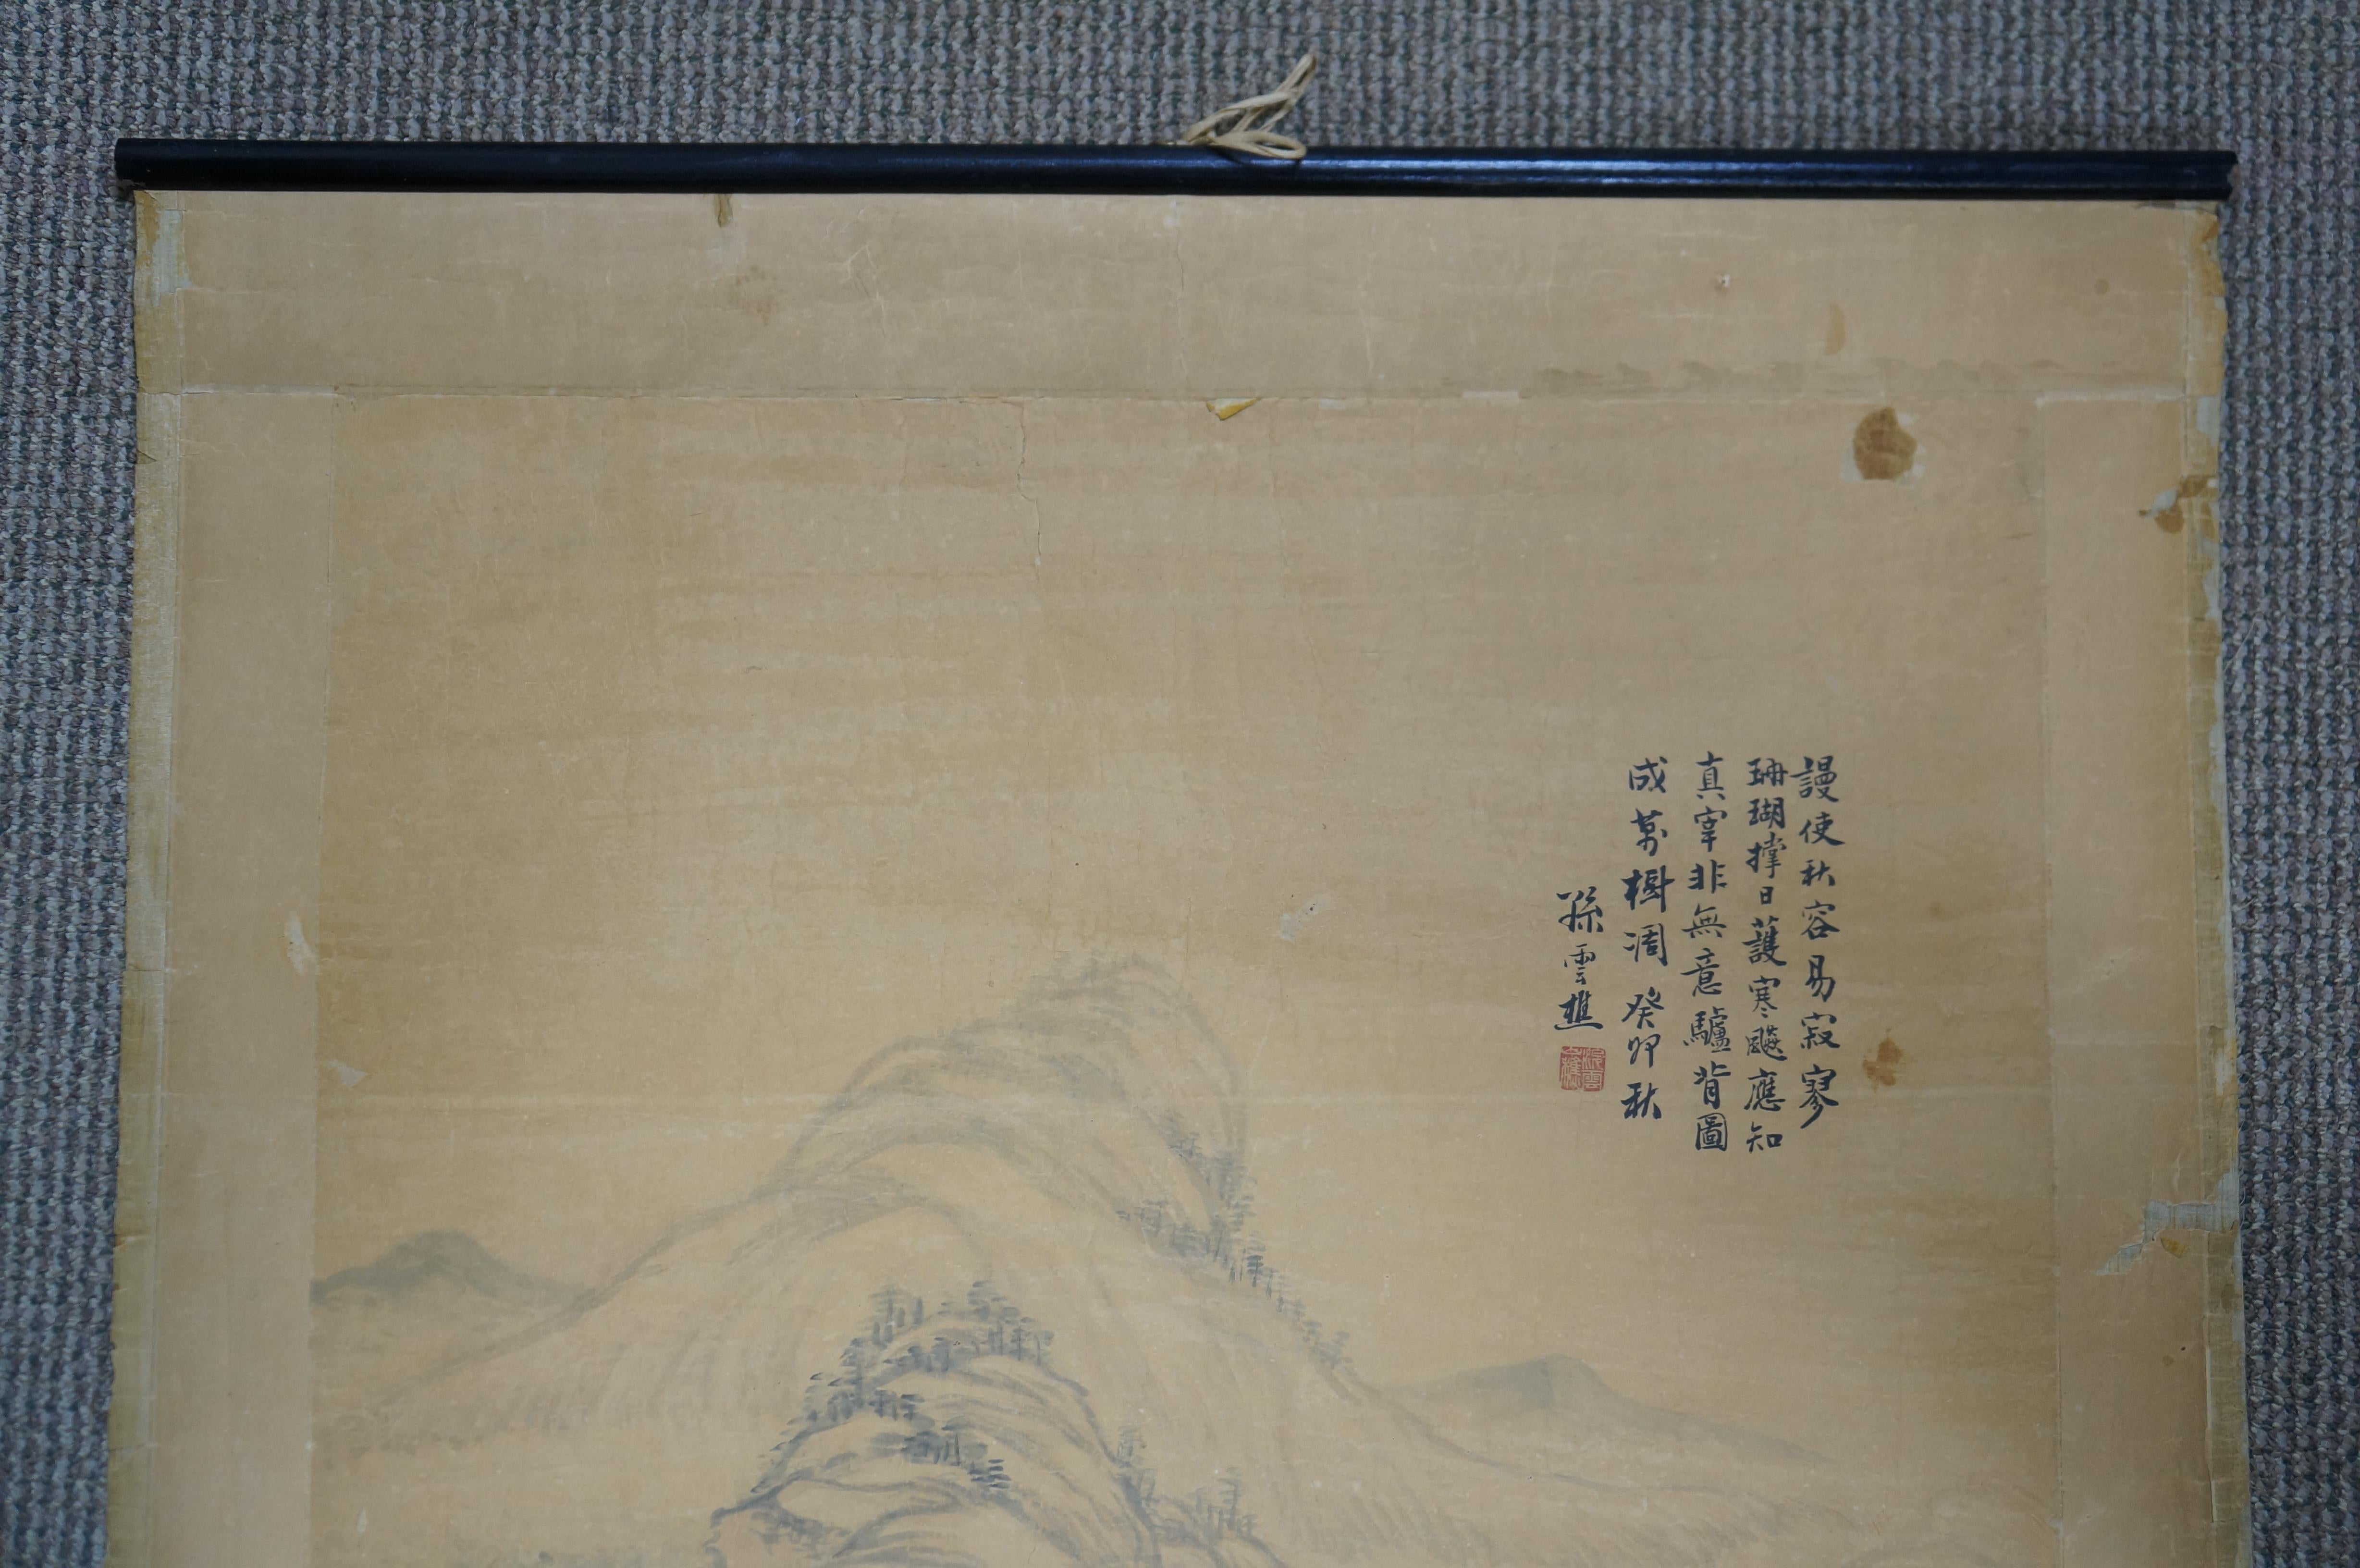 謾使秋容易寂寥
珊瑚撑日護寒飈應知
真宰非無意驢背圖
成萬樹凋 癸卯秋
孫雲樵